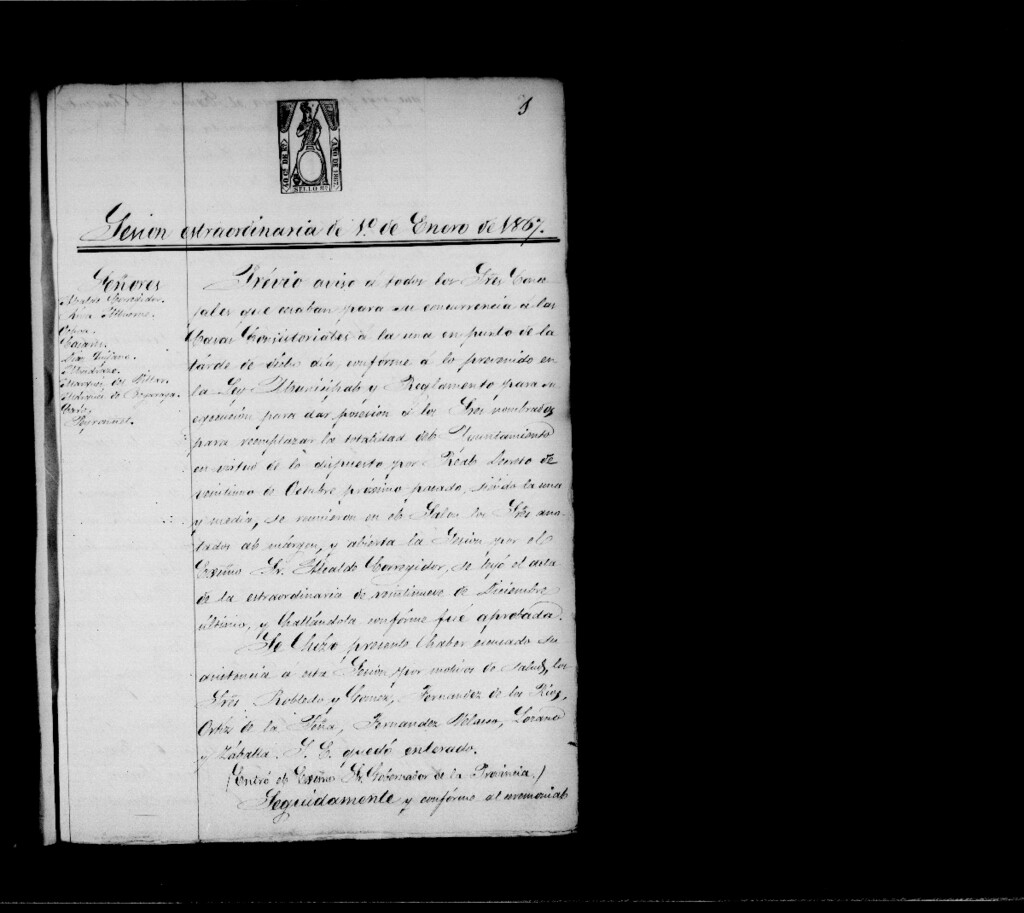 1
SELLO 10º
Sesion estraordinaria de 1º de Enero de 1867.
Señores
Corregidor.
Ochoa.
Marqués del Villar.
Marqués de
Peyronnet.
Prévio aviso á todos los Sres Conce-
jales que cesaban para su concurrencia á las
Casas Consistoriales á la una en punto de la
tarde de dicho dia, confórme á lo prevenido en
la Ley Municipal y Reglamento para su
egecucion para dar posesion á los Sres nombrados
para reemplazar la totalidad del Ayuntamiento
en virtud de lo dispuesto por Real Decreto de
veintiuno de Octubre próximo pasado, siendo la una
y media, se reunieron en el Salon los Sres ano-
tados al márgen, y abierta la Sesion por el
Exsmo Sr. Alcalde Corregidor, se leyó el acta
de la estraordinaria de veintinueve de Diciembre
último, y hallándola confórme fué aprobada.
Se hizo presente haber escusado su
asistencia á esta Sesion por motivos de salud, los
Sres. Robledo y Gomez, Fernandez de los Rios,
Ortiz de la Peña, Fernandez Lozano
y Zabalza. S. E. quedó enterado.
(Entró el Exsmo Sr. Gobernador de la Provincia.)
Seguidamente y confórme al ceremonial